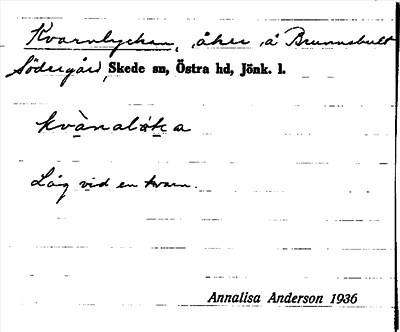 Kvarnlyckan, åker å Brunnsbult
Södergård, Skede sn, Östra hd, Jönk. l.
kvànaløka
Låg vid en kvarn.
Annalisa Anderson 1936